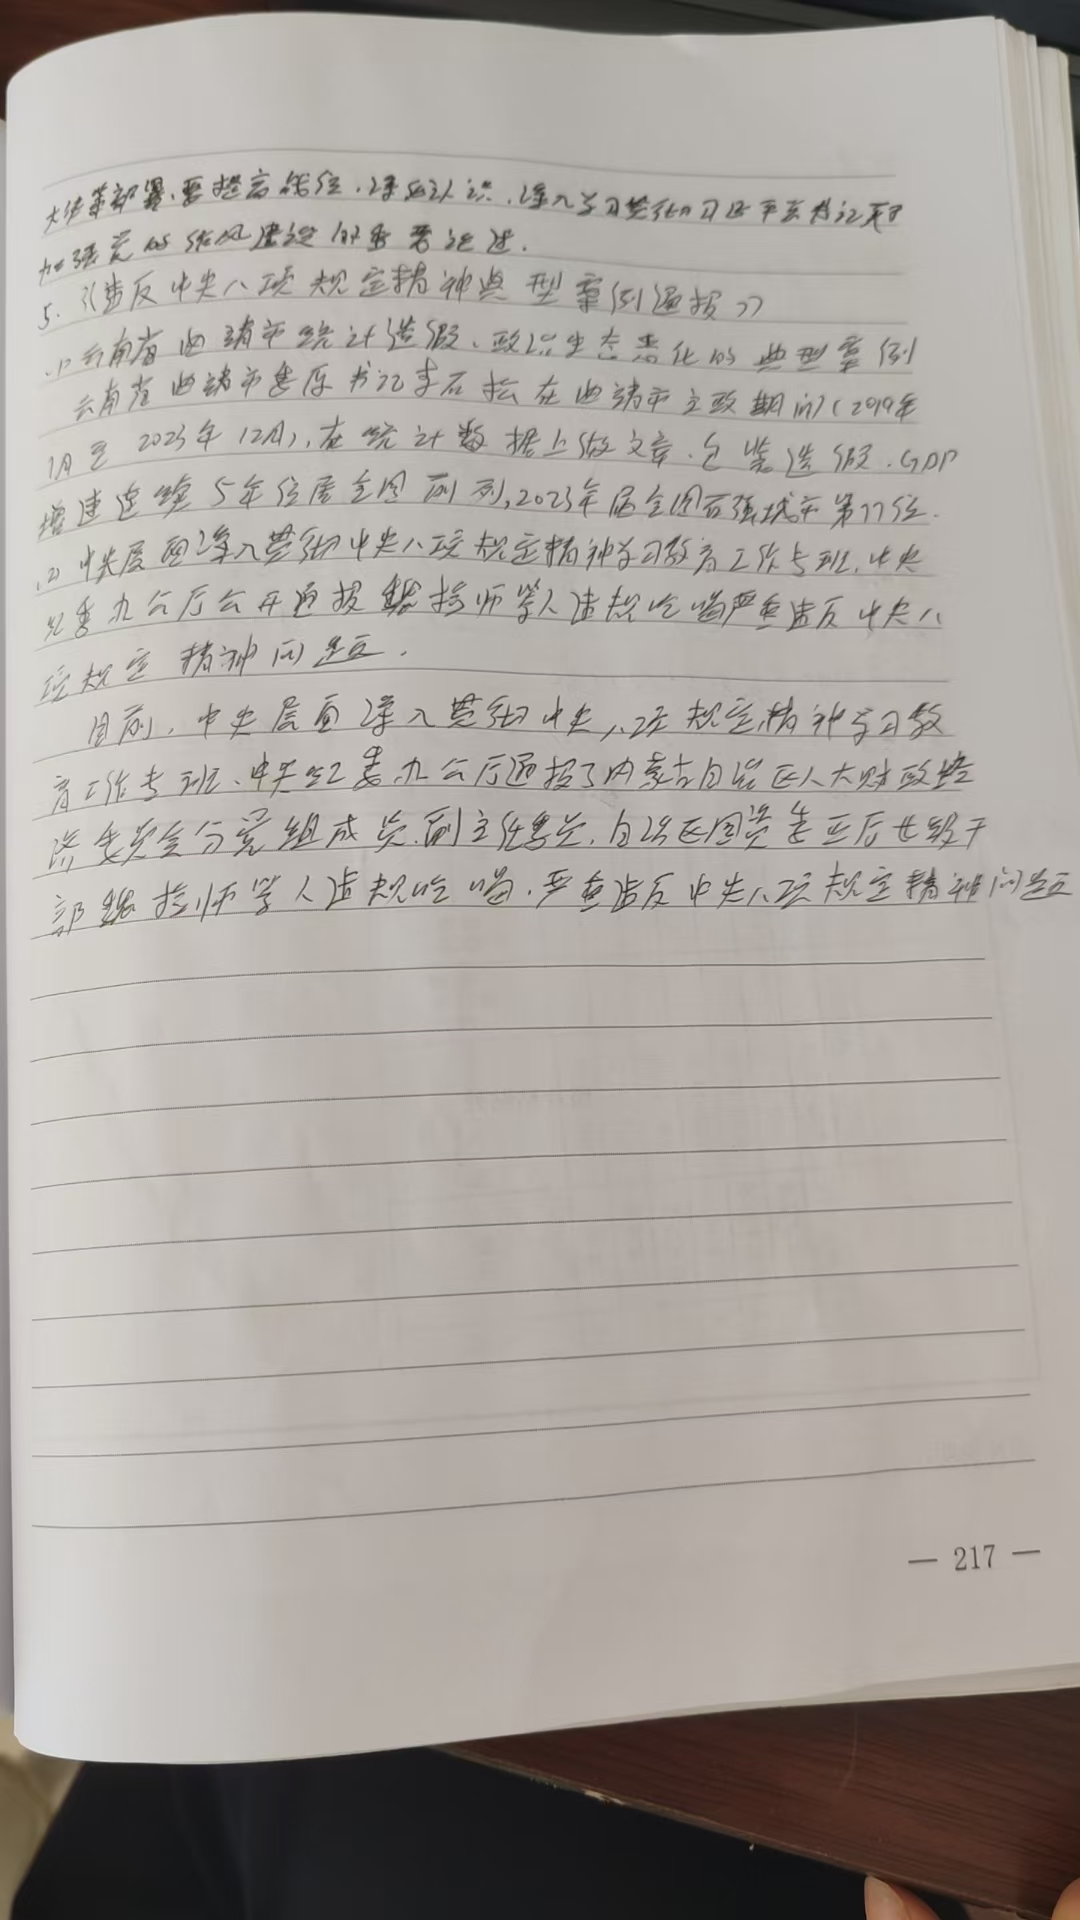 大决策部署,要提高站位,深化认识,深入学习贯彻习近平总书记关于
加强党的作风建设的重要论述.
5.《违反中央八项规定精神典型案例通报》
(1)云南省曲靖市统计造假、政治生态恶化的典型案例
云南省曲靖市委原书记李石松在曲靖市主政期间(2019年
1月至2023年12月),在统计数据上做文章.包装造假.GDP
增速连续5年位居全国前列,2023年居全国百强城市第77位.
(2)中央层面深入贯彻中央八项规定精神学习教育工作专班,中央
纪委办公厅公开通报 拴师等人违规吃喝严重违反中央八
项规定精神问题.
目前,中央层面深入贯彻中央八项规定精神学习教
育工作专班、中央纪委办公厅通报了内蒙古自治区人大财政经
济委员会分党组成员.副主任委员,自治区国资委正厅长级干
部 拴师等人违规吃喝,严重违反中央八项规定精神问题
— 217 —